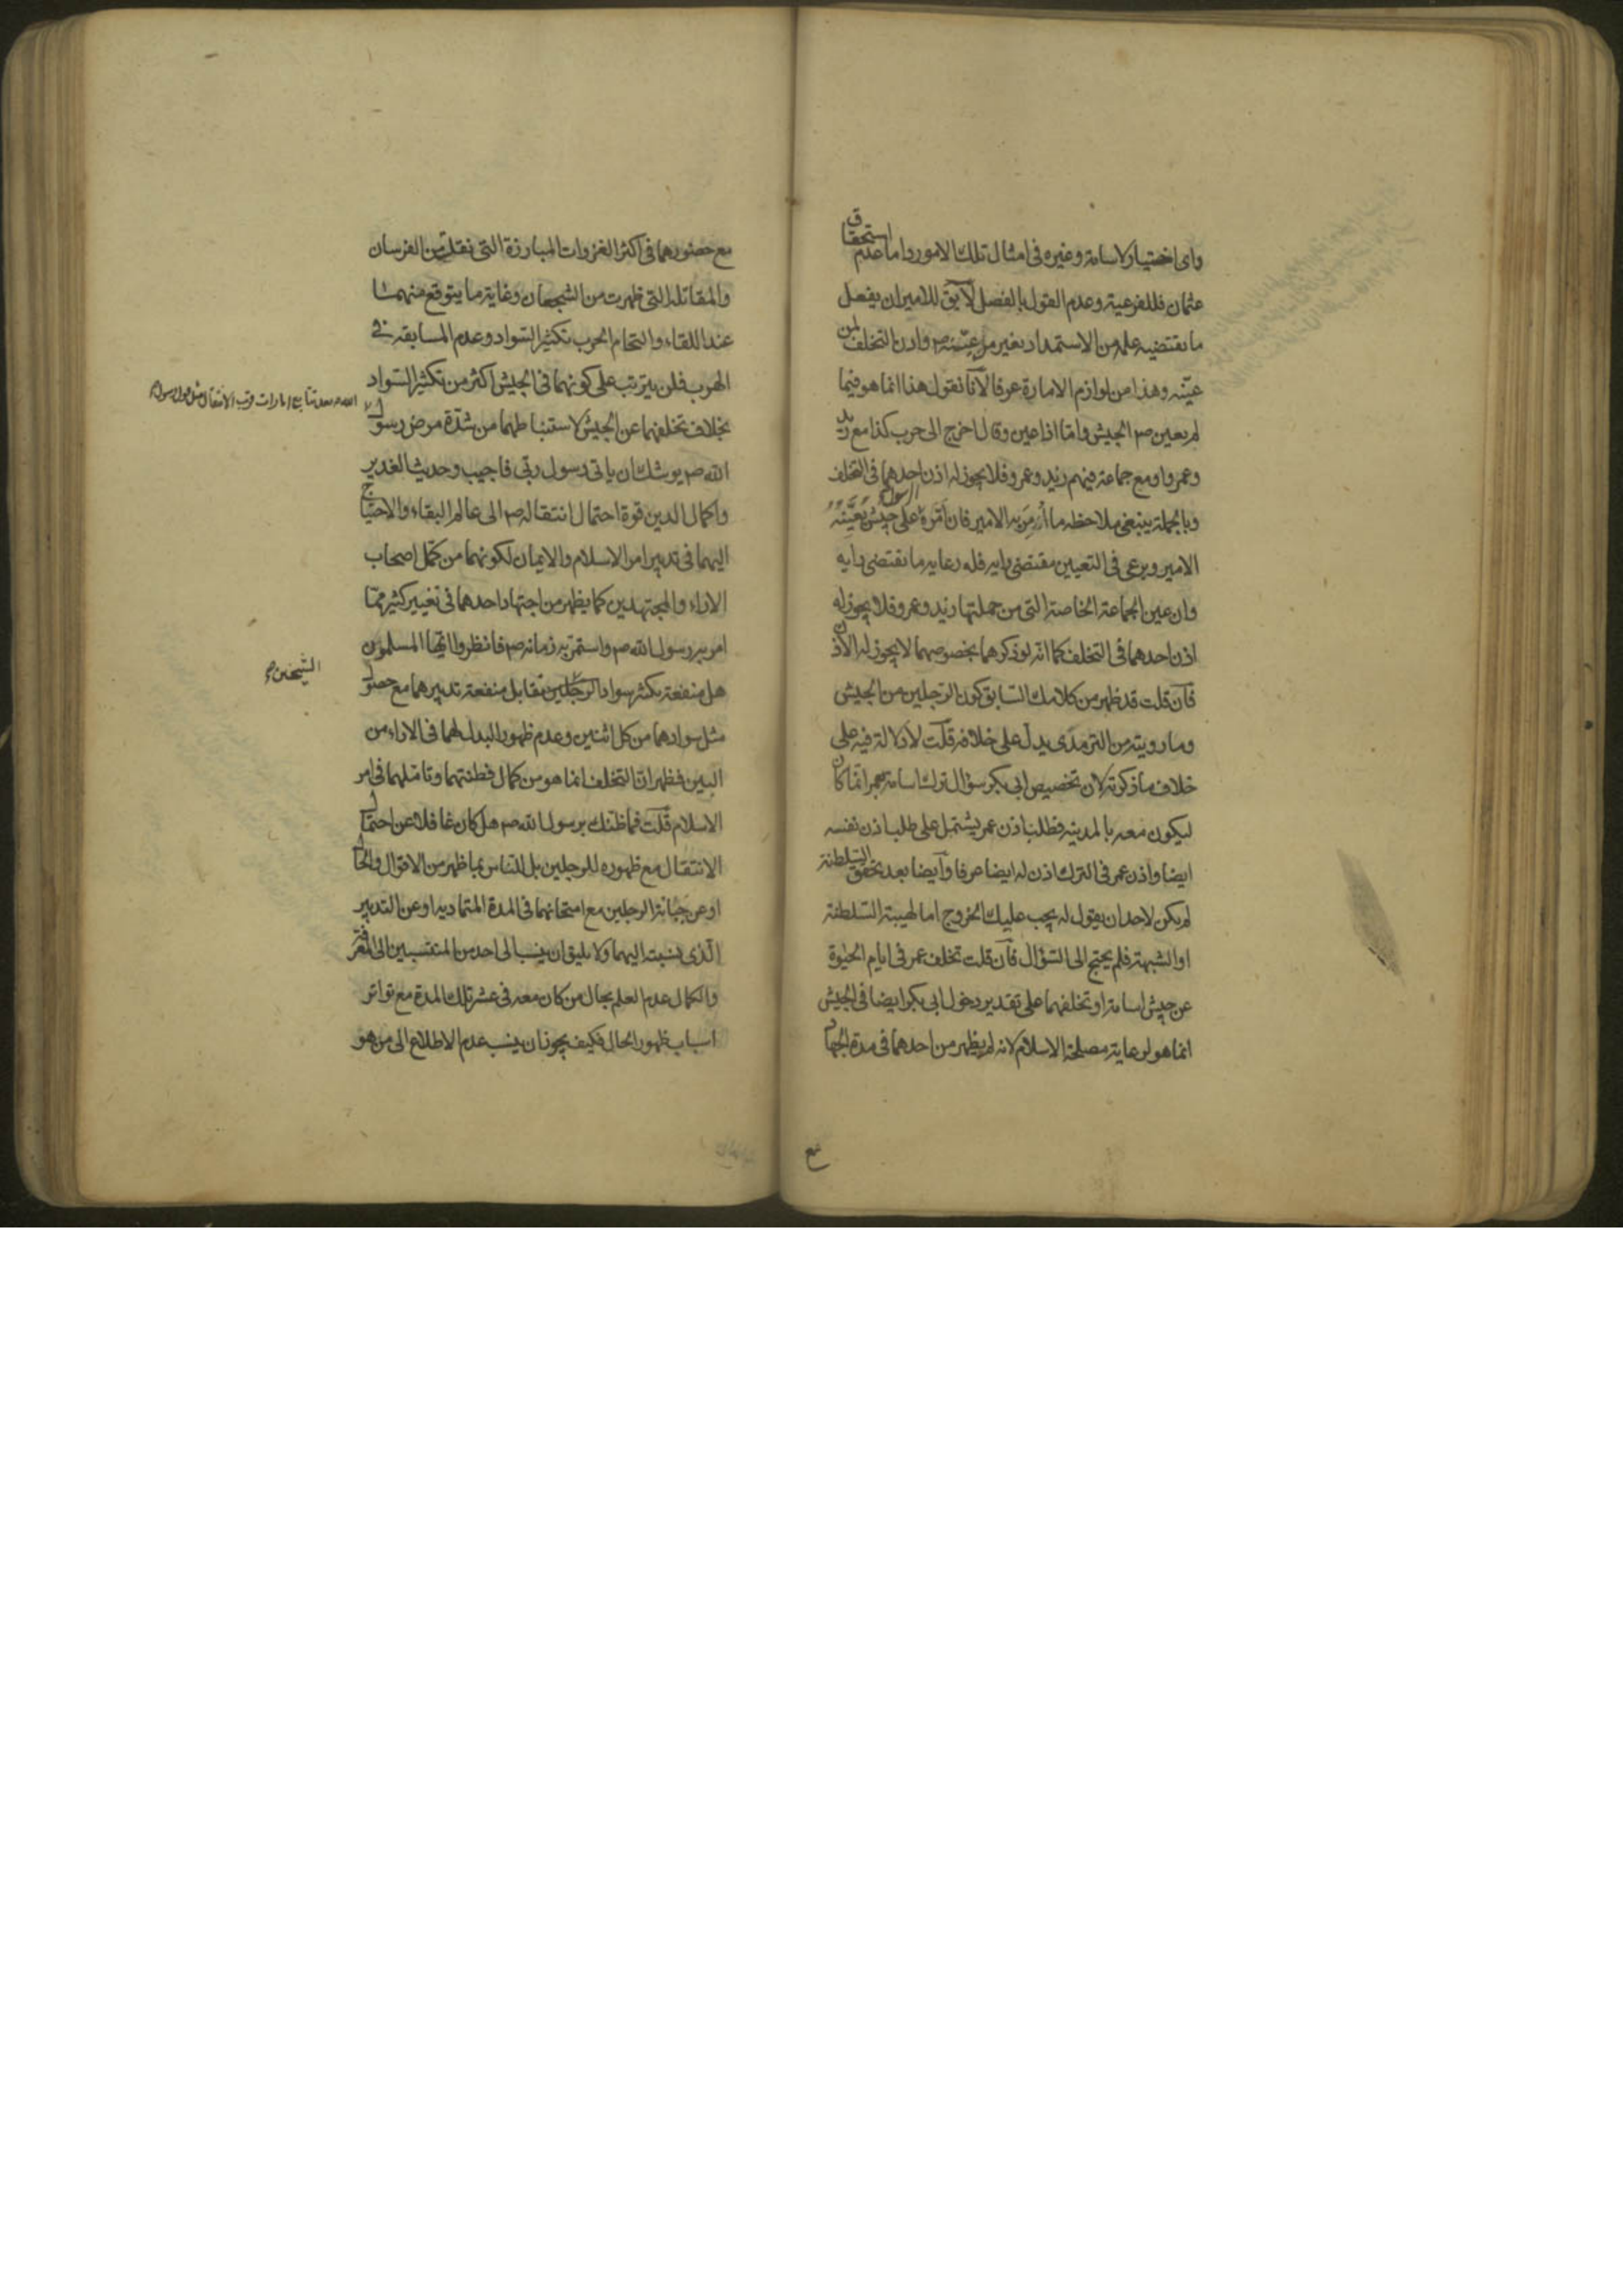 واى اختيار لاسامة وغيره فى امثال تلك الامور واما عدم استحقاق
عثمان فللفرعية وعدم القول بالفصل لايق للامير ان يفعل
ما يقتضيه علمه من الاستمداد بغير من عيّنه ص واذن التخلف لمن
عيّنه وهذا من لوازم الامارة عرفا لانا نقول هذا انما هو فيما
لم يعين ص الجيش واما اذا عين وقال اخرج الى حرب كذا مع زيد
وعمرو او مع جماعة فيهم زيد وعمرو فلا يجوز له اذن احدهما فى التخلف
وبالجملة ينبغى ملاحظة ما اُمِرَ به الامير فان اَمَّرَهُ الرسول على جيش يُعَيِّنُهُ
الامير ويرعى فى التعيين مقتضى رايه فله رعاية ما يقتضى رايه
وان عين الجماعة الخاصة التى من جملتها زيد وعمرو فلا يجوز له
اذن احدهما فى التخلف كما انه لو ذكرهما بخصوصهما لا يجوز له الاذن
فان قلت قد ظهر من كلامك السابق كون الرجلين من الجيش
وما رويته من الترمذى يدل على خلافه قلت لا دلالة فيه على
خلاف ما ذكرته لان تخصيص ابى بكر سؤال ترك اسامة بعمر انما كان
ليكون معه بالمدينة فطلب اذن عمر يشتمل على طلب اذن نفسه
ايضا واذن عمر فى الترك اذن له ايضا عرفا وايضا بعد تحقق السلطنة
لم يكن لاحد ان يقول له يجب عليك الخروج اما لهيبة السلطنة
او الشبهة فلم يحتج الى السؤال فان قلت تخلف عمر فى ايام الحيوة
عن جيش اسامة او تخلفهما على تقدير دخول ابى بكر ايضا فى الجيش
انما هو لرعاية مصلحة الاسلام لانه لم يظهر من احدهما فى مدة الجهاد
مع
مع حضورهما فى اكثر الغزوات المبارزة التى نقلت من الفرسان
والمقاتلة التى ظهرت من الشجعان وغاية ما يتوقع منهما
عند اللقاء والتحام الحرب تكثير السواد وعدم المسابقة فى
الهرب فلن يترتب على كونهما فى الجيش اكثر من تكثير السواد
بخلاف تخلفهما عن الجيش لاستنباطهما من شدة مرض رسول
الله ص يوشك ان ياتى رسول ربى فاجيب وحديث الغدير
واكمال الدين قوة احتمال انتقاله ص الى عالم البقاء والاحتياج
اليهما فى تدبير امر الاسلام والايمان لكونهما من كمل اصحاب
الاراء والمجتهدين كما يظهر من اجتهاد احدهما فى تغيير كثير مما
امر به رسول الله ص واستمر به زمانه ص فانظروا ايها المسلمون
هل منفعة تكثر سواد الرجلين تقابل منفعة تدبيرهما مع حصول
مثل سوادهما من كل اثنين وعدم ظهور البدل لهما فى الاراء من
البين فظهر ان التخلف انما هو من كمال فطنتهما وتاملهما فى امر
الاسلام قلت فما ظنك برسول الله ص هل كان غافلا عن احتمال
الانتقال مع ظهوره للرجلين بل للناس بما ظهر من الاقوال والحال
او عن جبانة الرجلين مع امتحانهما فى المدة المتمادية او عن التدبير
الذى نسبت اليهما ولا يليق ان ينسب الى احد من المنتسبين الى المعرفة
والكمال عدم العلم بحال من كان معه فى عشر تلك المدة مع تواتر
اسباب ظهور الحال فكيف يجوز ان ينسب عدم الاطلاع الى من هو
بعد تتابع امارات قرب الانتقال مثل قول رسول
الشيخين